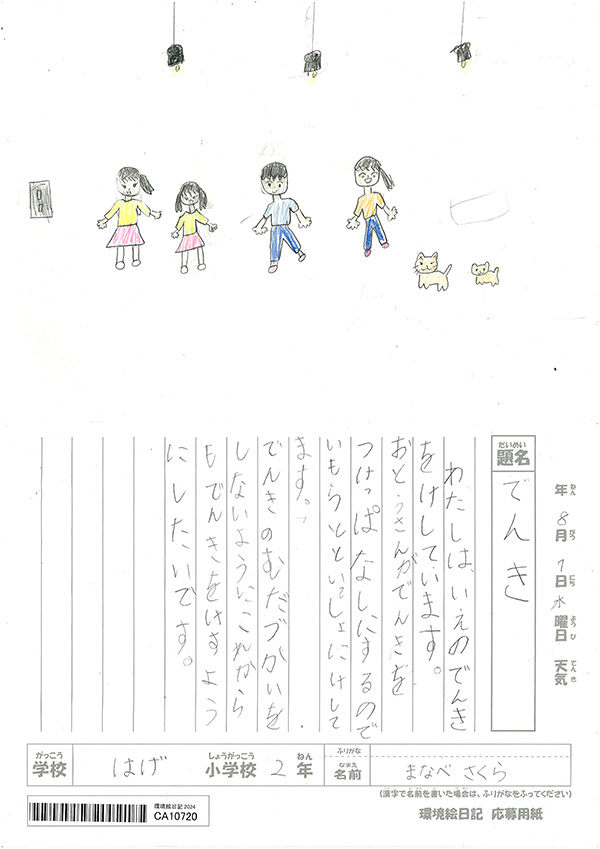 年 8月 7日 水曜日 天気
ねん がつ にち ようび てんき
だいめい
題名
でんき
わたしは、いえのでんき
をけしています。
おとうさんがでんきを
つけっぱなしにするので
いもうとといっしょにけして
ます。
でんきのむだづかいを
しないようにこれから
もでんきをけすよう
にしたいです。
がっこう
学校
はげ
しょうがっこう
小学校
2
ねん
年
ふりがな
なまえ
名前
まなべ さくら
(漢字で名前を書いた場合は、ふりがなをふってください)
環境絵日記 2024
CA10720
環境絵日記 応募用紙